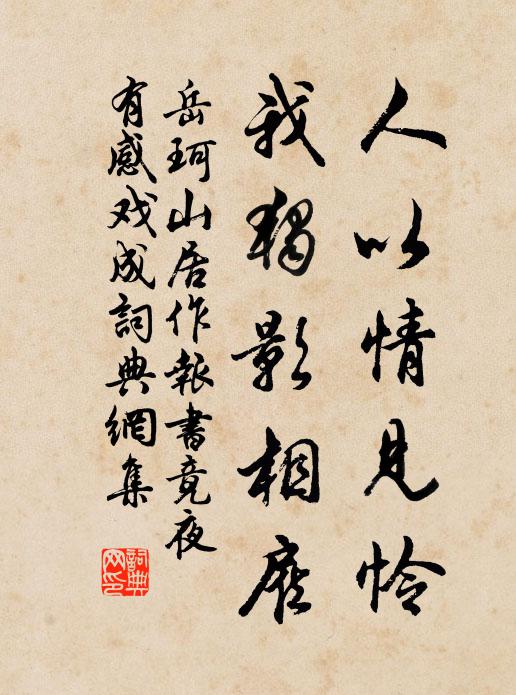 人以情见怜
我独影相依
岳珂山居作报書竟夜
有感戏成詞典網集
詞典网印